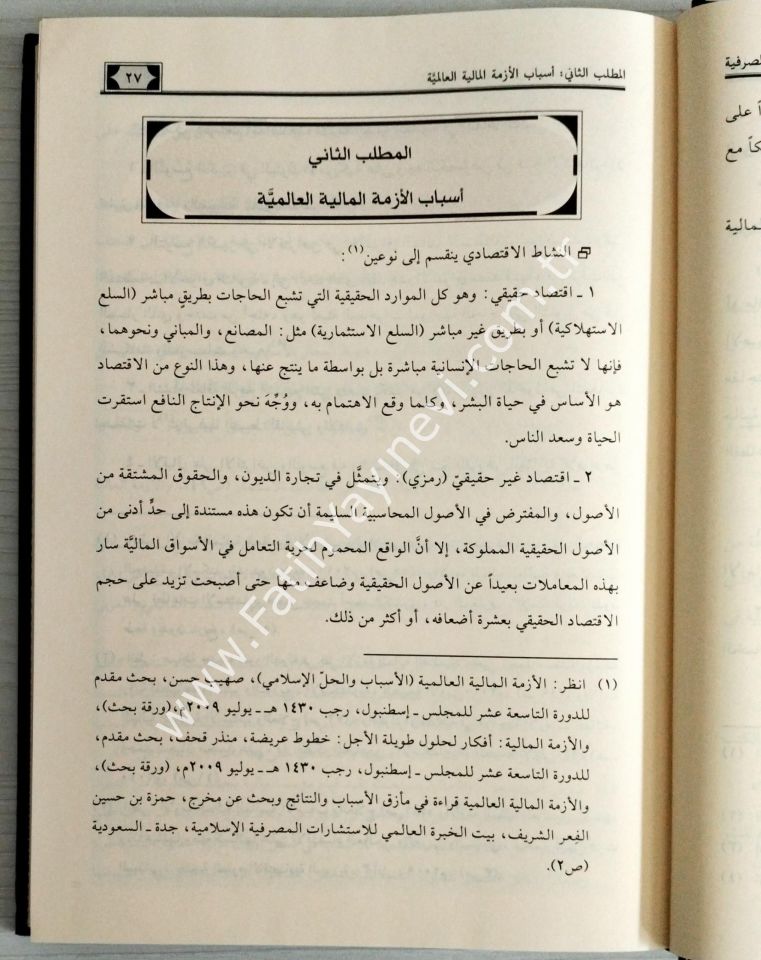 المطلب الثاني: أسباب الأزمة المالية العالميَّة
٢٧
المطلب الثاني
أسباب الأزمة المالية العالميَّة
النشاط الاقتصادي ينقسم إلى نوعين(١):
١ ـ اقتصاد حقيقي: وهو كل الموارد الحقيقية التي تشبع الحاجات بطريقٍ مباشر (السلع
الاستهلاكية) أو بطريق غير مباشر (السلع الاستثمارية) مثل: المصانع، والمباني ونحوهما،
فإنها لا تشبع الحاجات الإنسانية مباشرة بل بواسطة ما ينتج عنها، وهذا النوع من الاقتصاد
هو الأساس في حياة البشر، وكلما وقع الاهتمام به، ووُجِّهَ نحو الإنتاج النافع استقرت
الحياة وسعد الناس.
٢ ـ اقتصاد غير حقيقيّ (رمزي): ويتمثَّل في تجارة الديون، والحقوق المشتقة من
الأصول، والمفترض في الأصول المحاسبية السليمة أن تكون هذه مستندة إلى حدٍّ أدنى من
الأصول الحقيقية المملوكة، إلا أنَّ الواقع المحموم لحرية التعامل في الأسواق الماليَّة سار
بهذه المعاملات بعيداً عن الأصول الحقيقية وضاعف منها حتى أصبحت تزيد على حجم
الاقتصاد الحقيقي بعشرة أضعافه، أو أكثر من ذلك.
(١) انظر: الأزمة المالية العالمية (الأسباب والحلّ الإسلامي)، صهيب حسن، بحث مقدم
للدورة التاسعة عشر للمجلس ـ إسطنبول، رجب ١٤٣٠ هـ ـ يوليو ٢٠٠٩م، (ورقة بحث)،
والأزمة المالية: أفكار لحلول طويلة الأجل: خطوط عريضة، منذر قحف، بحث مقدم،
للدورة التاسعة عشر للمجلس ـ إسطنبول، رجب ١٤٣٠ هـ ـ يوليو ٢٠٠٩م، (ورقة بحث)،
والأزمة المالية العالمية قراءة في مأزق الأسباب والنتائج وبحث عن مخرج، حمزة بن حسين
الفِعر الشريف، بيت الخبرة العالمي للاستشارات المصرفية الإسلامية، جدة ـ السعودية
(ص٢).
www.FatihYayinevi.com.tr